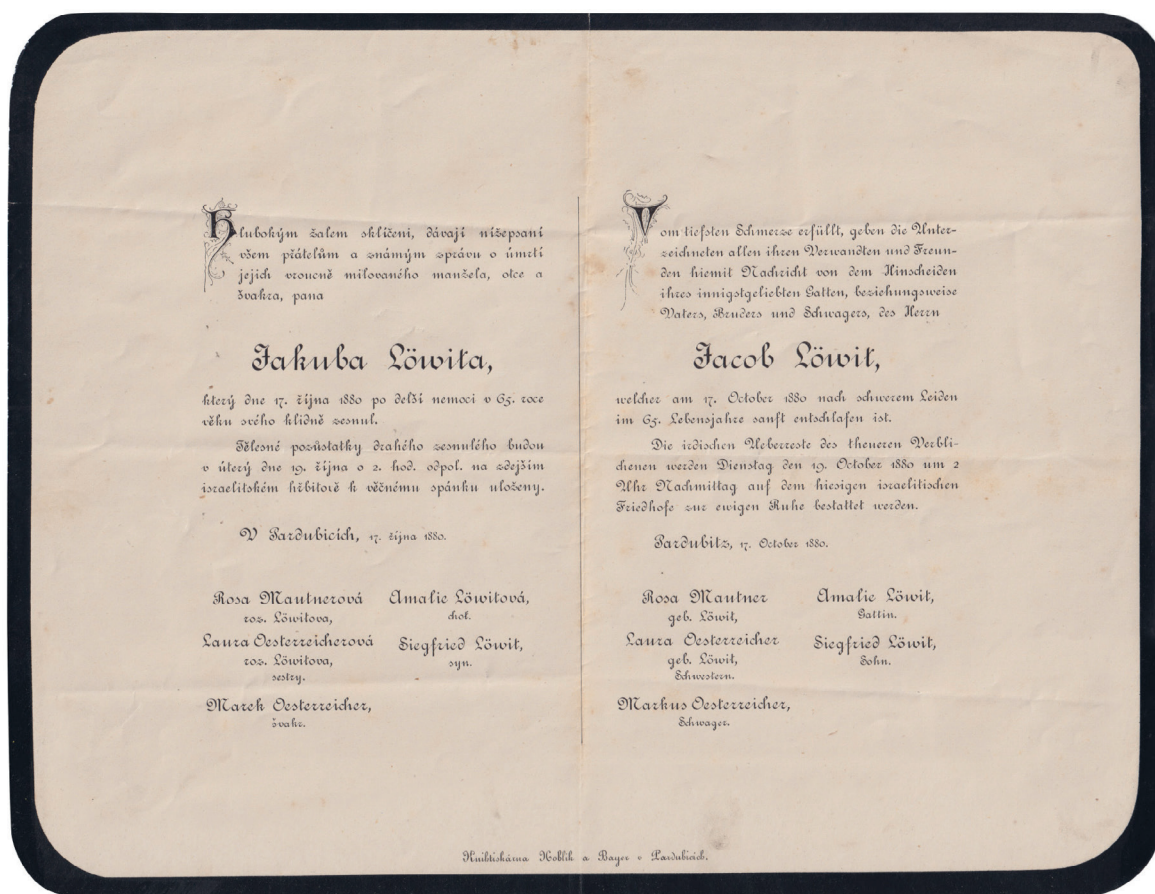 Hlubokým žalem sklíčeni, dávají nížepsaní
všem přátelům a známým zprávu o úmrtí
jejich vroucně milovaného manžela, otce a
švakra, pana
Jakuba Löwita,
který dne 17. října 1880 po delší nemoci v 65. roce
věku svého klidně zesnul.
Tělesné pozůstatky drahého zesnulého budou
v úterý dne 19. října o 2. hod. odpol. na zdejším
israelitském hřbitově k věčnému spánku uloženy.
V Pardubicích, 17. října 1880.
Rosa Mautnerová
roz. Löwitova,
Laura Oesterreicherová
roz. Löwitova,
sestry.
Marek Oesterreicher,
švakr.
Amalie Löwitová,
chot.
Siegfried Löwit,
syn.
Vom tiefsten Schmerze erfüllt, geben die Unter-
zeichneten allen ihren Verwandten und Freun-
den hiemit Nachricht von dem Hinscheiden
ihres innigstgeliebten Gatten, beziehungsweise
Vaters, Bruders und Schwagers, des Herrn
Jacob Löwit,
welcher am 17. October 1880 nach schwerem Leiden
im 65. Lebensjahre sanft entschlafen ist.
Die irdischen Ueberreste des theueren Verbli-
chenen werden Dienstag den 19. October 1880 um 2
Uhr Nachmittag auf dem hiesigen israelitischen
Friedhofe zur ewigen Ruhe bestattet werden.
Pardubitz, 17. October 1880.
Rosa Mautner
geb. Löwit,
Laura Oesterreicher
geb. Löwit,
Schwestern.
Markus Oesterreicher,
Schwager.
Amalie Löwit,
Gattin.
Siegfried Löwit,
Sohn.
Knihtiskárna Hoblík a Bayer v Pardubicích.